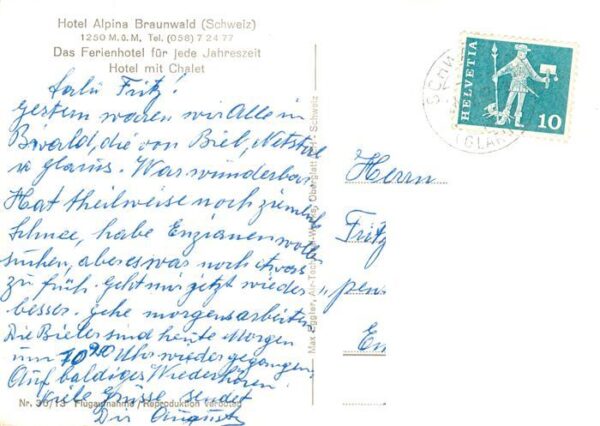 Hotel Alpina Braunwald (Schweiz)
1250 M.ü.M. Tel. (058) 7 24 77
Das Ferienhotel für jede Jahreszeit
Hotel mit Chalet
Salü Fritz!
Gestern waren wir Alle in
Bwald, die von Biel, Netstal
u Glarus. War wunderbar
Hat theilweise noch zieml
Schnee, habe Enzianen wolle
suchen, aber es war noch etwas
zu früh. Geht mir jetzt wieder
besser. Gehe morgens arbeiten
Die Bieler sind heute Morgen
um 10 Uhr wieder gegangen.
Auf baldiges Wiederhören.
Viele Grüsse sendet
Dir August
Nr. 30/13 Flugaufnahme / Reproduktion verboten
Max Eggler, Air-Technic-Oberglatt ZH - Schweiz
HELVETIA
10
(GLAR
Herrn
Fritz
pen
En